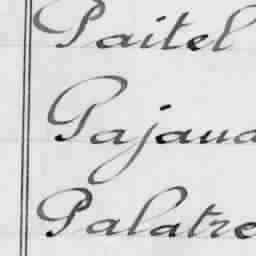 Paitel
Pajaud
Palatre